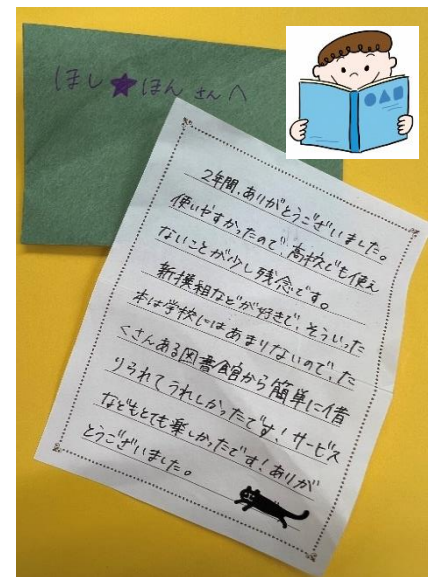 ほし★ほんさんへ
2年間、ありがとうございました。
使いやすかったので、高校でも使え
ないことが少し残念です。
新撰組などが好きで、そういった
本は学校にはあまりないので、た
くさんある図書館から簡単に借
りられてうれしかったです!サービス
などもとても楽しかったです!ありが
とうございました。